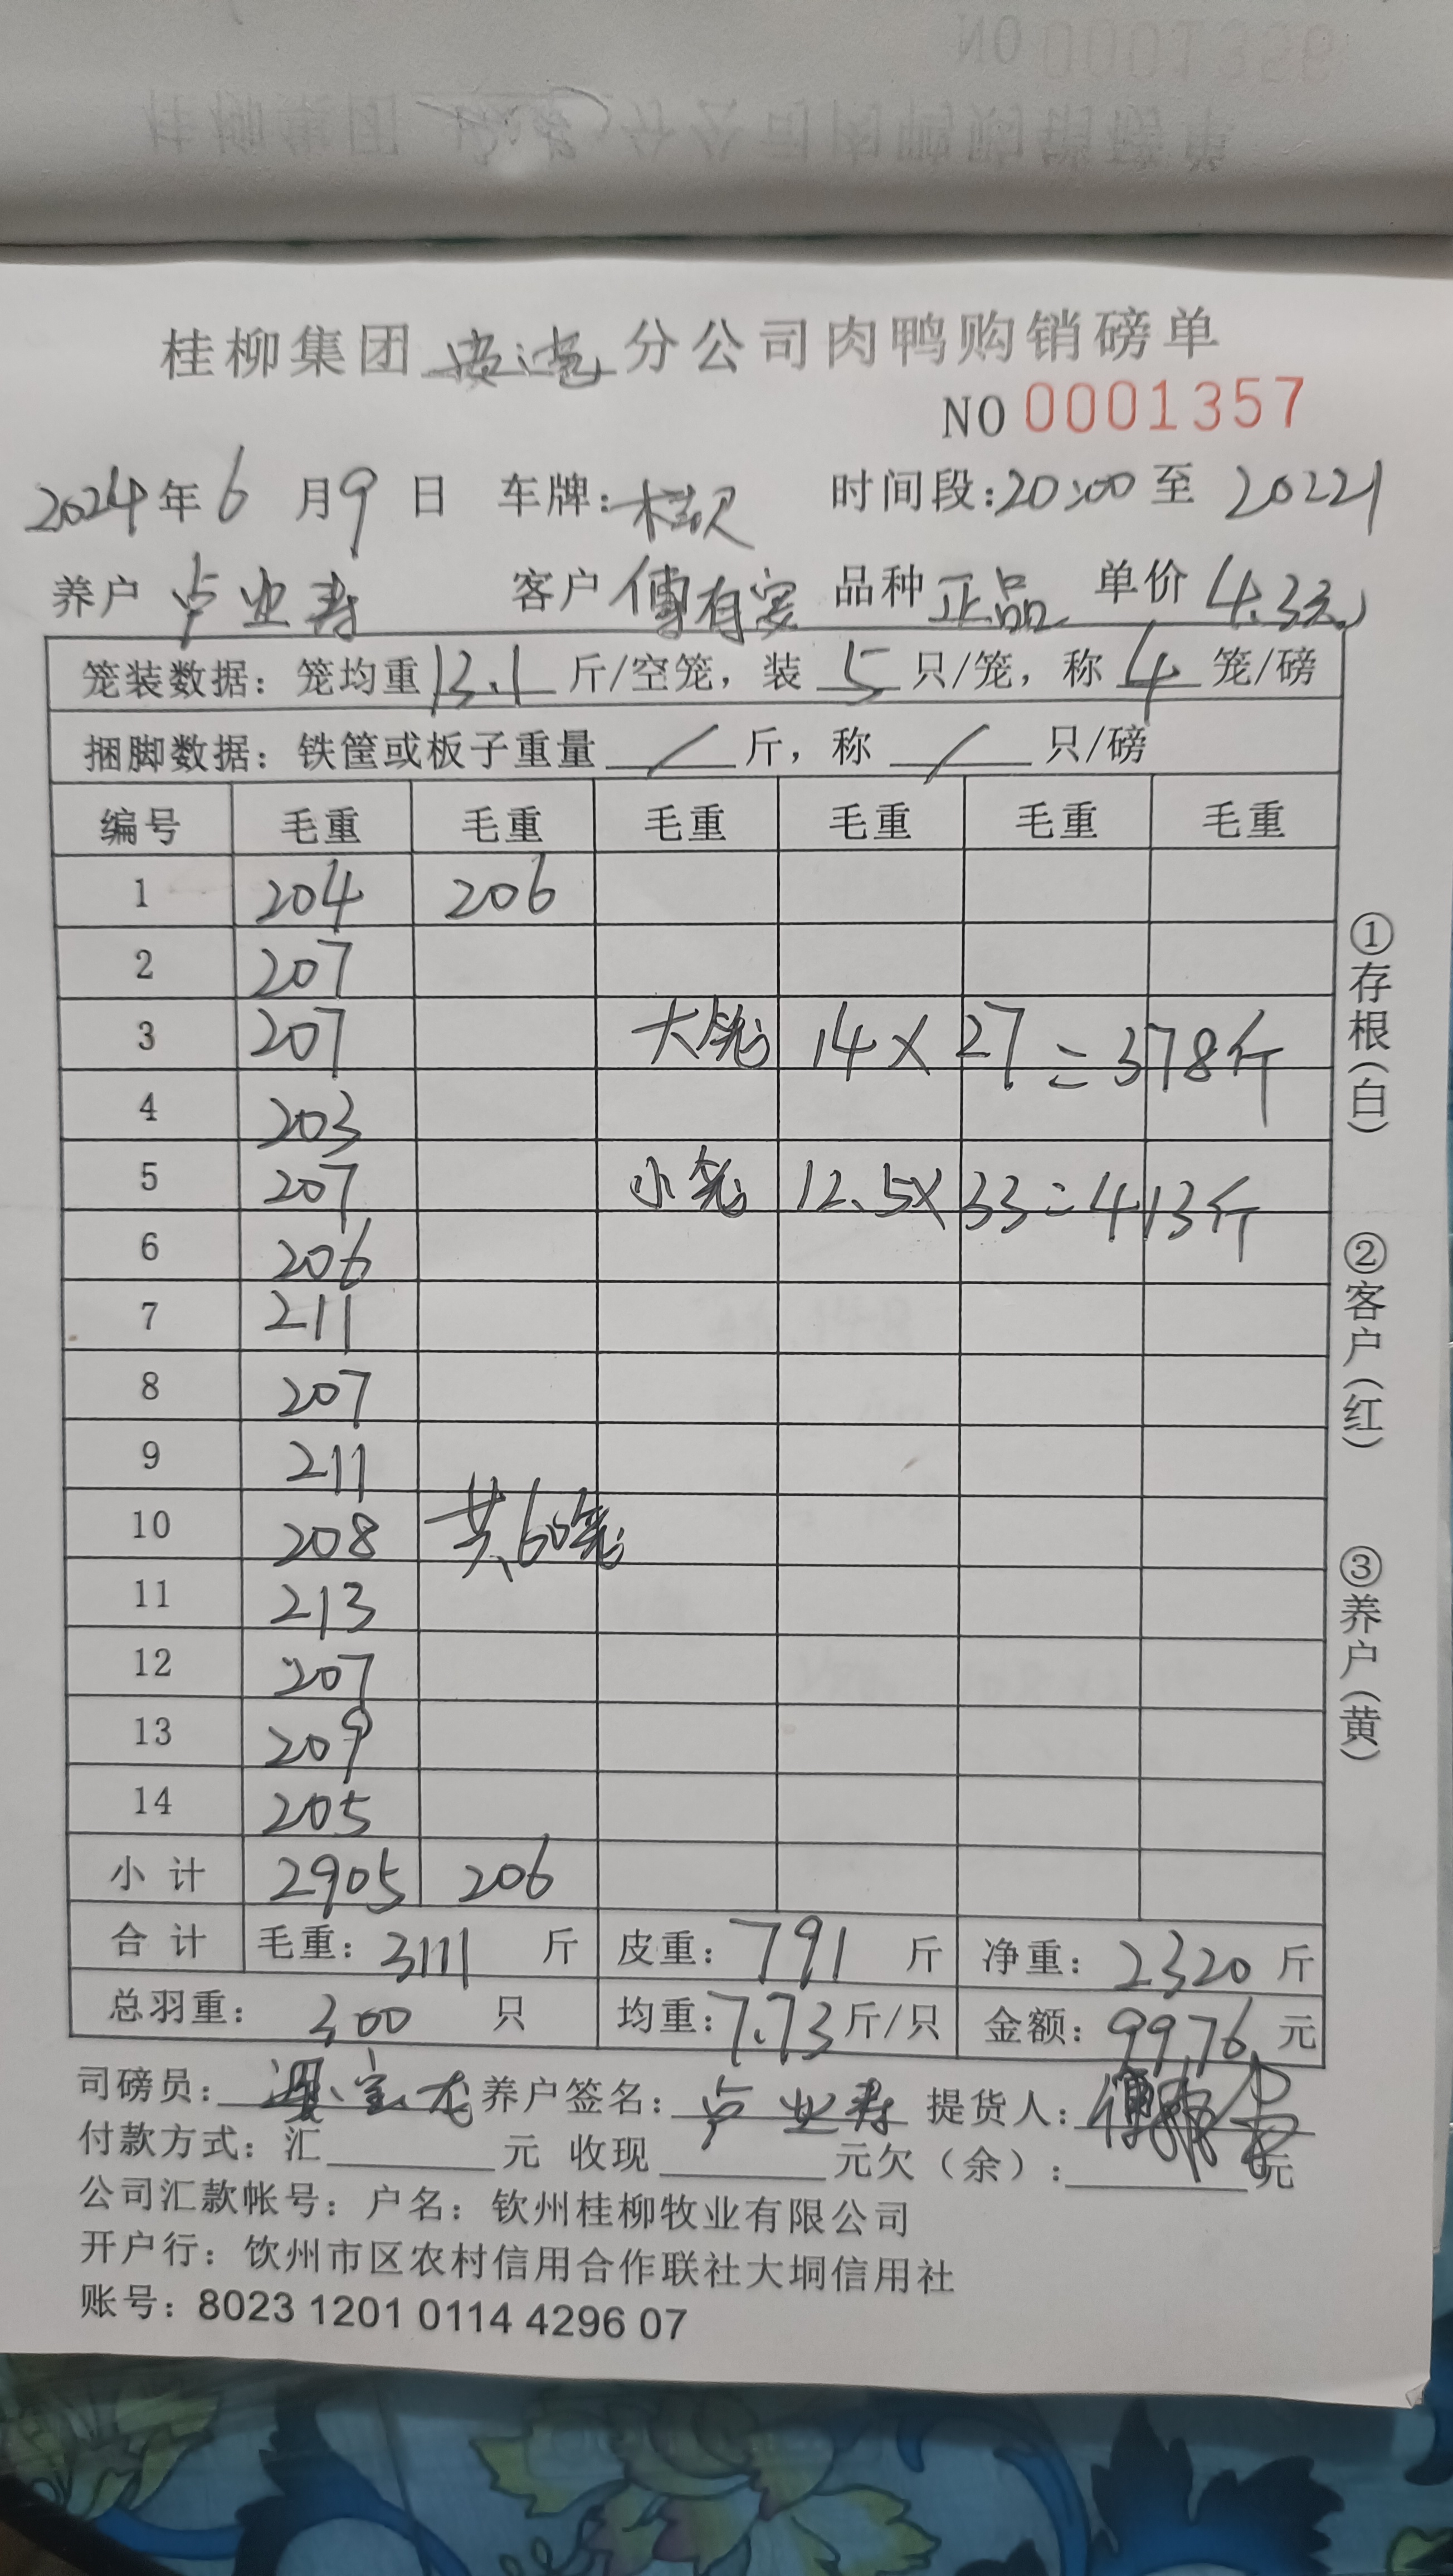 桂柳集团贵港分公司肉鸭购销磅单
NO 0001357
2024年6月9日 车牌: 时间段:20:00至20:22
养户 卢业寿 客户 傅有宴 品种 正品 单价 4.3元
笼装数据: 笼均重13.1斤/空笼, 装5只/笼, 称4笼/磅
捆脚数据: 铁筐或板子重量 / 斤, 称 / 只/磅
编号 毛重 毛重 毛重 毛重 毛重 毛重
1 204 206
2 207
3 207 大笼 14×27=378斤
4 203
5 207 小笼 12.5×33=413斤
6 206
7 211
8 207
9 211
10 208 共60笼
11 213
12 207
13 209
14 205
小计 2905 206
合计 毛重: 3111 斤 皮重: 791 斤 净重: 2320 斤
总羽重: 300 只 均重: 7.73斤/只 金额: 9976 元
司磅员: 养户签名: 卢业寿 提货人:
付款方式: 汇 元 收现 元欠(余): 元
公司汇款帐号: 户名: 钦州桂柳牧业有限公司
开户行: 饮州市区农村信用合作联社大垌信用社
账号: 8023 1201 0114 4296 07
①存根(白)
②客户(红)
③养户(黄)